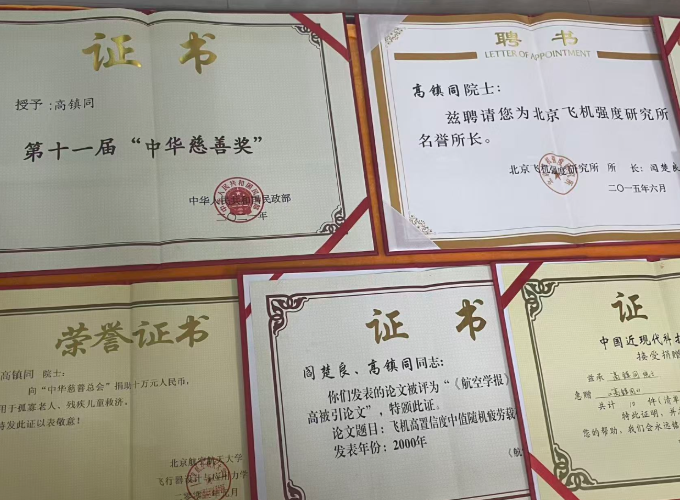 证书
授予：高镇同
第十一届“中华慈善奖”
中华人民共和国民政部
聘书
LETTER OF APPOINTMENT
高镇同院士：
兹聘请您为北京飞机强度研究所
名誉所长。
北京飞机强度研究所 所 长：阎楚良
二〇一五年六月
荣誉证书
高镇同 院士：
向“中华慈善总会”捐助十万元人民币，
用于孤寡老人、残疾儿童救济，
特发此证以表敬意！
北京航空航天大学
证书
阎楚良、高镇同同志：
你们发表的论文被评为“《航空学报》
高被引论文”，特颁此证。
论文题目：飞机高置信度中值随机疲劳载
发表年份：2000年
《航
证
中国近现代科技
接受捐赠
兹承 高镇同院士
惠赠
共计 10 件（清单
特此证明，并
您的帮助，我们会永远铭